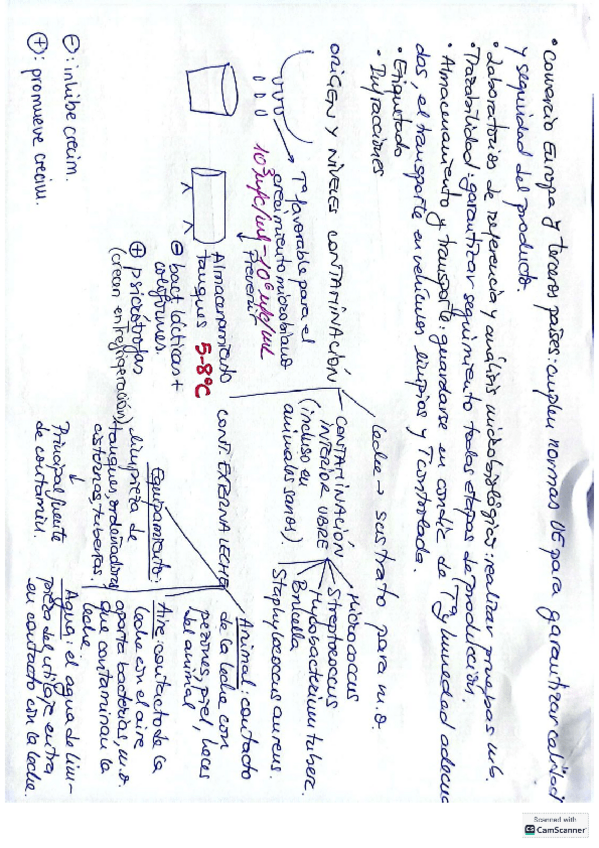 • Comercio Europa y terceros países: cumplen normas UE para garantizar calidad
y seguridad del producto.
• Laboratorios de referencia y análisis microbiológico: realizar pruebas mb.
• Trazabilidad: garantizar seguimiento todas etapas de producción.
• Almacenamiento y transporte: guardarse en condic de Tª y humedad adecua
das, el transporte en vehículos limpios y T controlada.
• Etiquetado
• Infracciones
leche → sustrato para m.o.
ORIGEN Y NIVELES CONTAMINACIÓN
CONTAMINACIÓN
INTERIOR UBRE
(incluso en
animales sanos)
Micrococcus
Streptococcus
Micobacterium tuberc.
Brucella
Staphylococcus aureus.
Tª favorable para el
crecimiento microbiano
↓ Prevenir
10³ ufc/ml - 10⁶ ufc/ml
Almacenamiento
tanques 5-8ºC
⊖ bact lácticas +
coliformes.
⊕ psicrótrofas
(crecen en refrigeración)
CONT. EXTERNA LECHE
Animal: contacto
de la leche con
pezones, piel, heces
del animal
Aire: contacto de la
leche con el aire
aporta bacterias, m.o.
que contaminan la
leche.
Equipamiento:
limpieza de
tanques, ordeñadora
cisternas, tuberías.
↓
Principal fuente
de contamin.
Agua, el agua de lim-
pieza del utillaje entra
en contacto con la leche.
⊖: inhibe crecim.
⊕: promueve crecim.
Scanned with
CamScanner